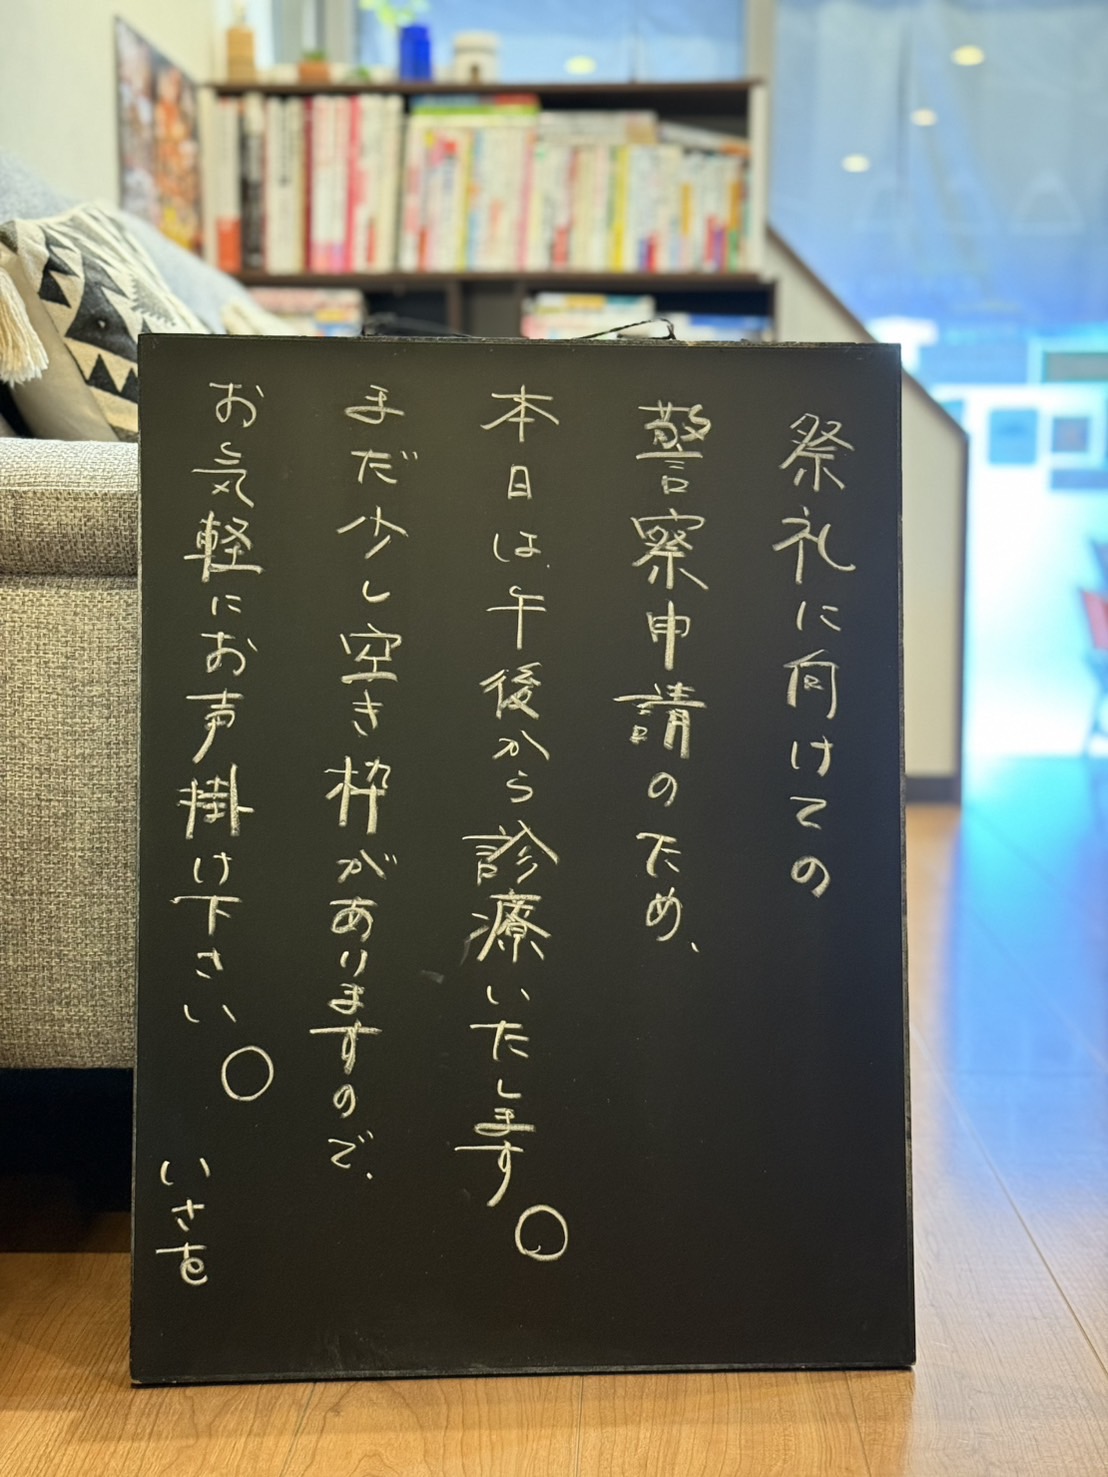 祭礼に向けての
警察申請のため、
本日は、午後から診療いたします。
まだ少し空き枠がありますので、
お気軽にお声掛け下さい。
いさを